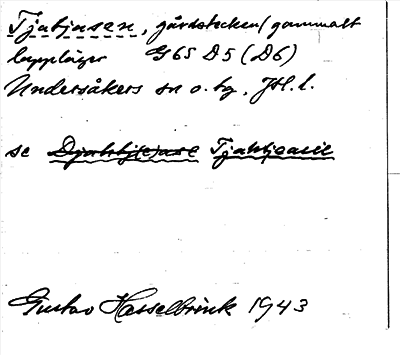 Tjatjasen, gårdstecken/gammalt
lappläger G65 D5 (D6)
Undersåkers sn o. hg, Jtl. l.
se Djahkj(e)ase Tjahkjoasie
Gustav Hasselbrink 1943